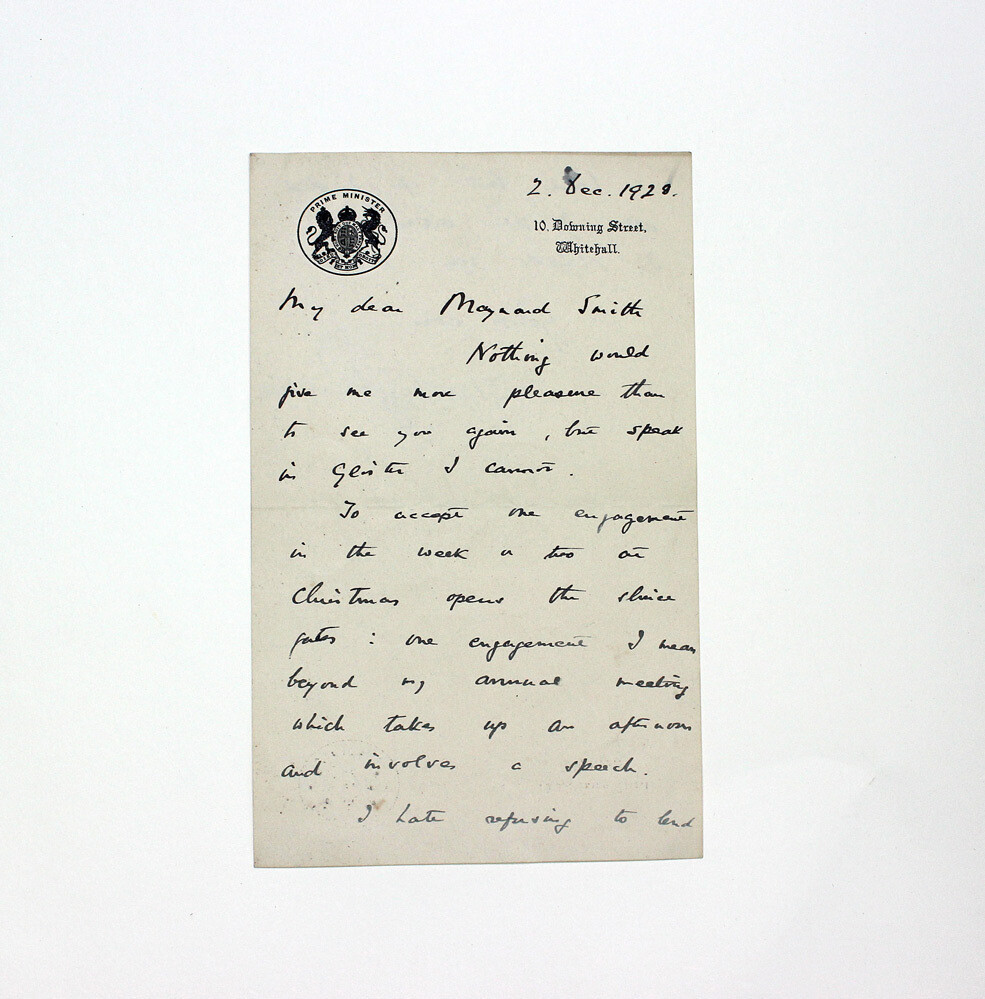 PRIME MINISTER
2. Dec. 1928.
10, Downing Street,
Whitehall.
My dear Maynard Smith
Nothing would
give me more pleasure than
to see you again, but speak
in Glo'ster I cannot.
To accept one engagement
in the week or two at
Christmas opens the sluice
gates: one engagement I mean
beyond my annual meeting
which takes up an afternoon
and involves a speech.
I hate refusing to lend